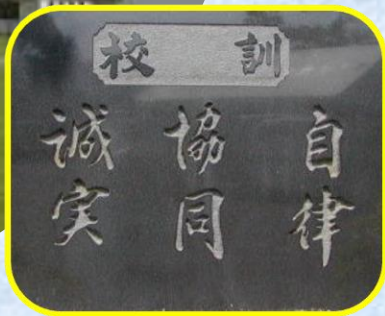 校訓
自律
協同
誠実